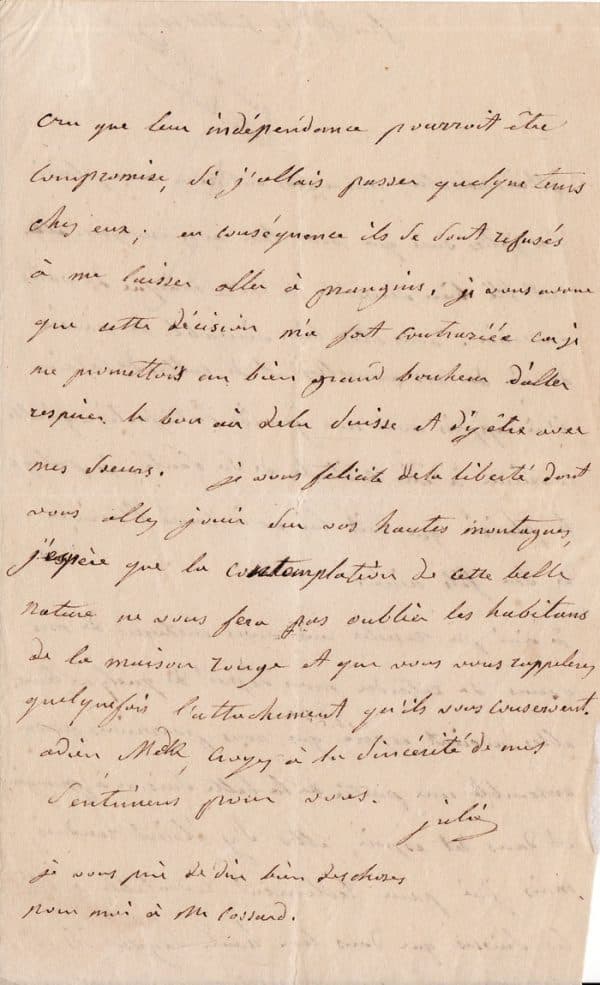 cru que leur indépendance pourroit être
compromise, si j'allais passer quelque tems
chez eux; en conséquence ils se sont refusés
à me laisser aller à prangins. je vous avoue
que cette décision m'a fort contrariée car je
me promettois un bien grand bonheur d'aller
respirer le bon air dela suisse et d'y être avec
mes soeurs. je vous félicite dela liberté dont
vous allez jouir sur vos hautes montagnes,
j'espère que la contemplation de cette belle
nature ne vous fera pas oublier les habitans
de la maison rouge et que vous vous rappelerez
quelquefois l'attachement qu'ils vous conservent.
adieu Melle, croyez à la sincérité de mes
sentimens pour vous.
julie
je vous prie de dire bien deschoses
pour moi à Mr Cossard.